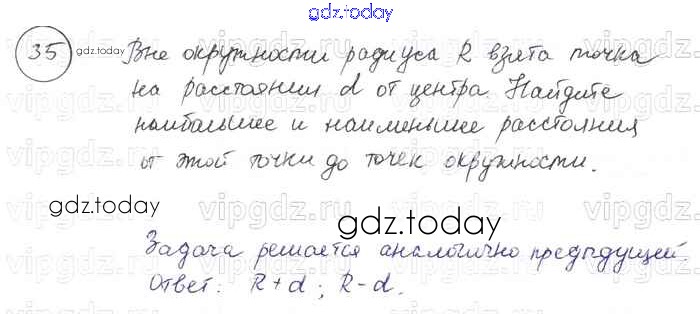 gdz.today
35 gdz.today Вне окружности радиуса R взята точка
на расстоянии d от центра. Найдите
наибольшее и наименьшее расстояния
от этой точки до точек окружности.
gdz.today
gdz.today
Задача решается аналогично предыдущей.
Ответ: R+d; R-d.